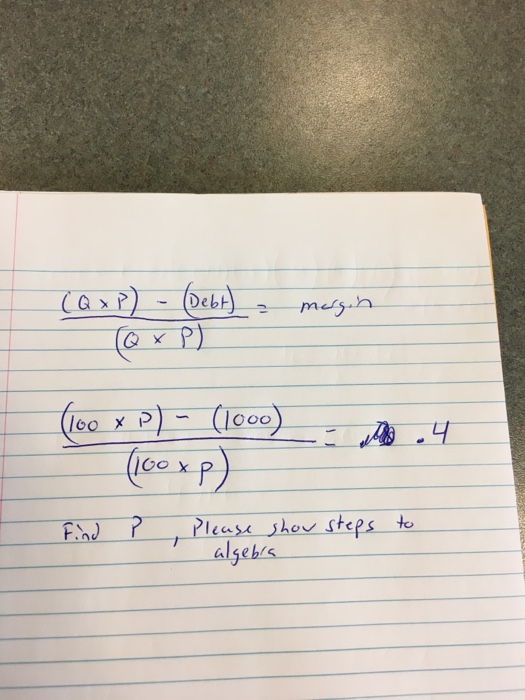 (Q x P) - (Debt) = margin
(Q x P)
(100 x P) - (1000) = .4
(100 x P)
Find P, Please show steps to
algebra